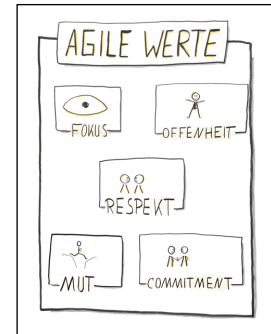 AGILE WERTE
FOKUS
OFFENHEIT
RESPEKT
MUT
COMMITMENT